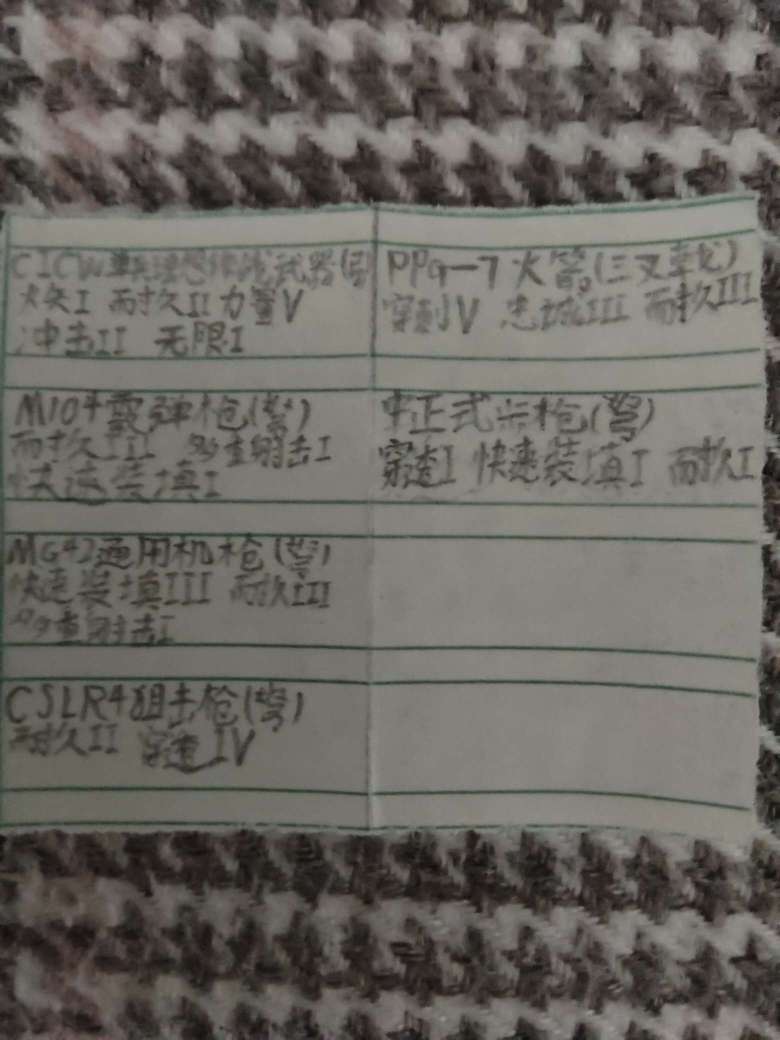 CICW
武器(弓
火矢I 耐久II 力量V
冲击II 无限I
PPG-7 火箭(三叉戟)
穿刺V 忠诚III 耐久III
M104霰弹枪(弩)
耐久III 多重射击I
快速装填I
中正式步枪(弩)
穿透I 快速装填I 耐久I
MG42通用机枪(弩)
快速装填III 耐久III
多重射击I
CSLR4狙击枪(弩)
耐久II 穿透IV